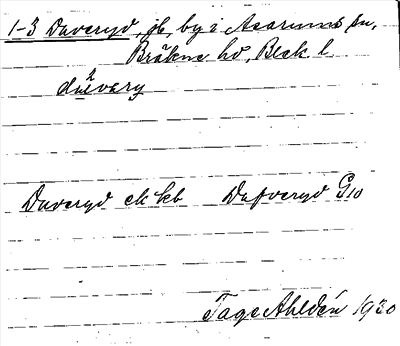 1-3 Duveryd, jb, by i Asarums sn,
Bräkne hd, Blek l.
du²very
Duveryd ek kb Dufveryd G10
Tage Ahldén 1930